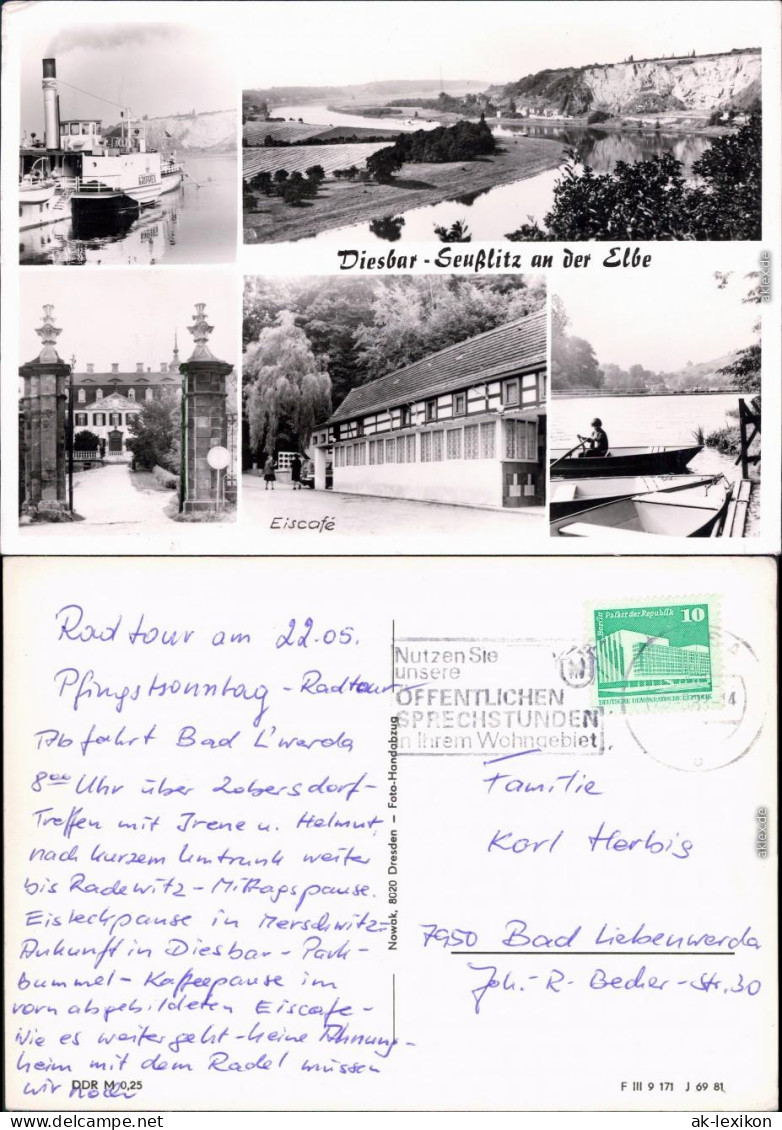 Diesbar - Seußlitz an der Elbe
Eiscafé
aklex.de
Radtour am 22.05.
Pfingstsonntag - Radtour
Abfahrt Bad L'werda
8⁰⁰ Uhr über Zobersdorf-
Treffen mit Irene u. Helmut,
nach kurzem Umtrunk weiter
bis Radewitz - Mittagspause.
Eisleckpause in Merschwitz-
Ankunft in Diesbar - Park-
bummel - Kaffeepause im
vorn abgebildeten Eiscafe -
Wie es weitergeht - keine Ahnung -
heim mit dem Radel müssen
wir noch
DDR M 0,25
Nowak, 8020 Dresden — Foto-Handabzug
Nutzen Sie
unsere
ÖFFENTLICHEN
SPRECHSTUNDEN
in Ihrem Wohngebiet
Berlin Palast der Republik 10
DEUTSCHE DEMOKRATISCHE REPUBLIK
Familie
Karl Herbig
7950 Bad Liebenwerda
Joh.-R. Becher-Str. 30
F III 9 171 J 69 81
aklex.de
www.ak-lexikon.de
ak-lexikon